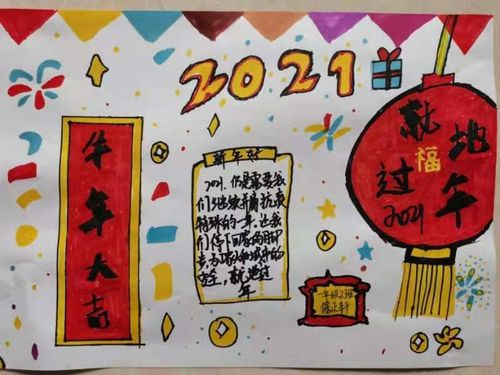 2021
牛年大吉
新年好
2021.仍是需要我
们继续并肩抗疫
特殊的一年.让我
们停下回家的脚
步,为了
安全,就地过
年
就地
福
过年
2021
一年级2班